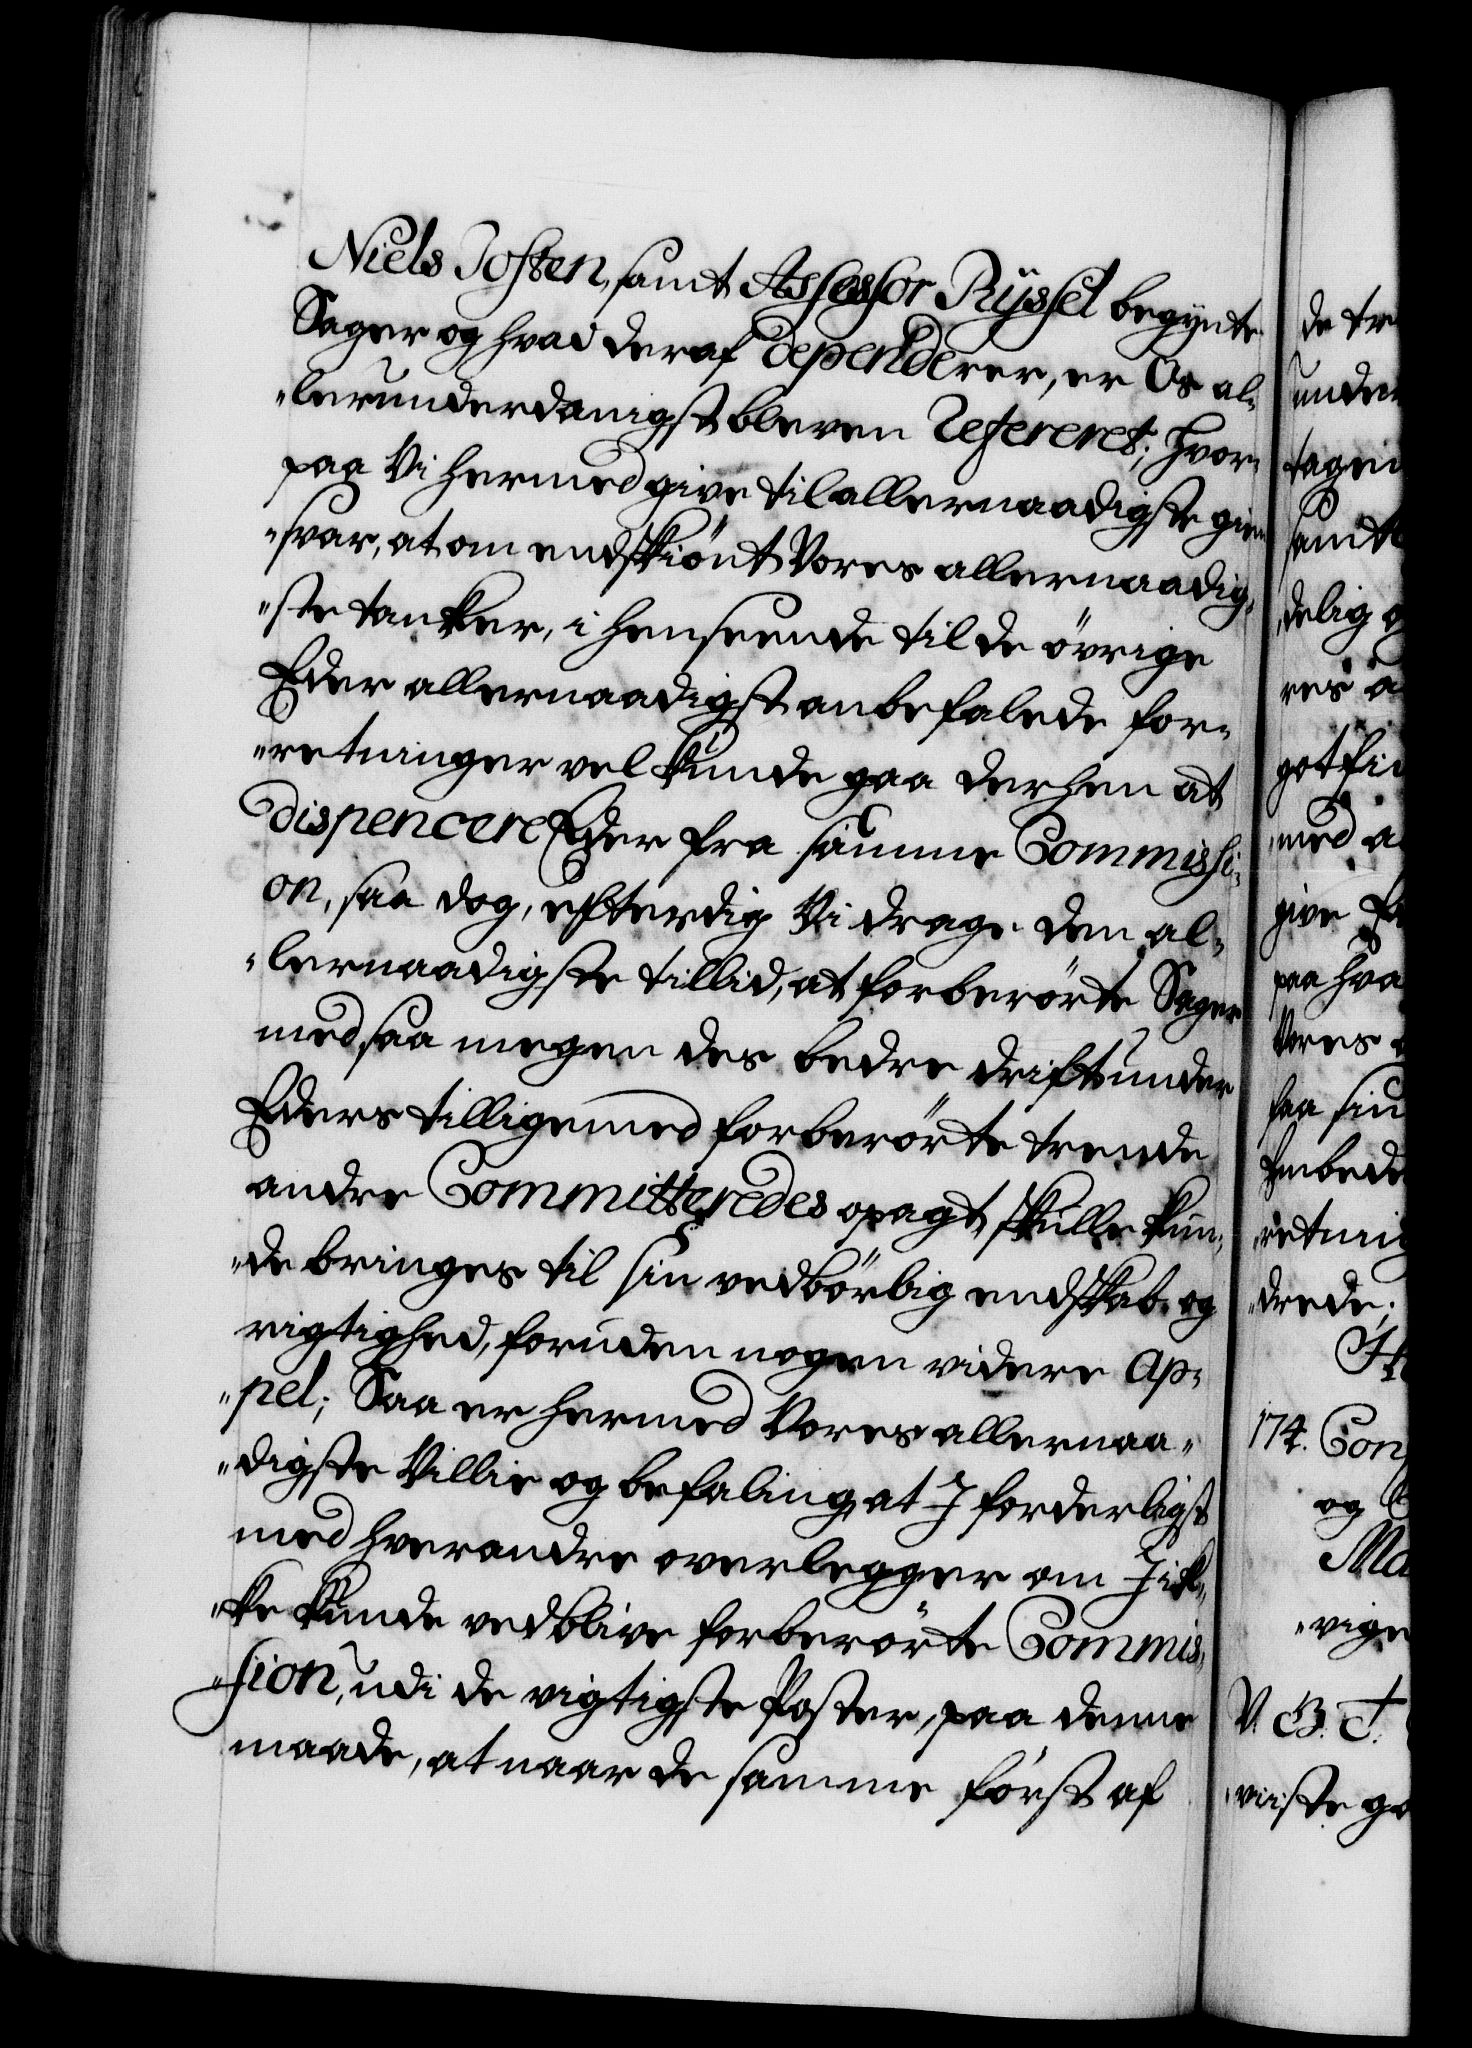 Niels Josten, samt Assessor Rÿssel begynte
Sager og hvad deraf dependerer, er Os al-
"lerunderdanigst bleven Refereret; hvor-
paa Vi hermed give til allernaadigste gien-
"svar, at om endskiönt Vores allernaadig-
"ste tanker, i henseende til de övrige
Eder allernaadigst anbefalede for-
"retninger vel kunde gaa derhen at
dispencere Eder fra samme Commissi-
on, saa dog, efterdig Vi drage den al-
"lernaadigste tillid, at forberörte Sager
med saa megen des bedre drift under
Eders tilligemed forberörte trende
andre Committeredes opagt, skulle kun-
"de bringes til sin vedbörlig endskab og
rigtighed, foruden nogen videre Ap-
"pel; Saa er hermed Vores allernaa-
"digste Villie og befaling, at I forderligst
med hverandre overlegger om I ik-
"ke kunde vedblive forberörte Commis-
"sion, udi de vigtigste Poster, paa denne
maade, at naar de samme först af
de tr
under
tagen
samt
delig
res a
got fi
med a
give
paa hva
Vores
saa sin
Embede
"retni
"drede;
174. Con
og
Ma
"vige
V. G. T.
"viiste go